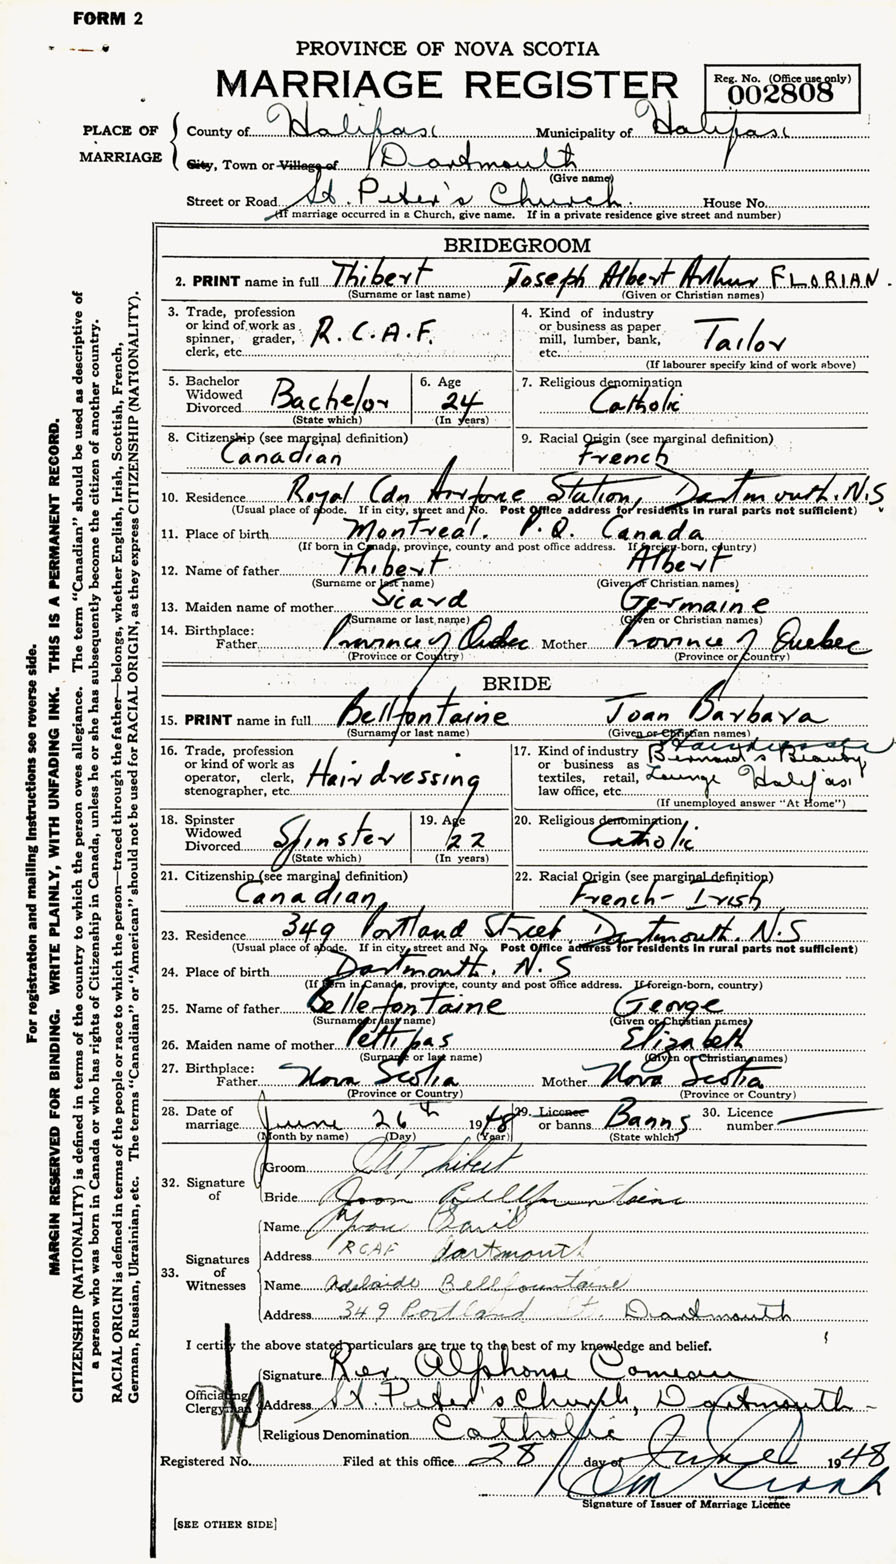 FORM 2
PROVINCE OF NOVA SCOTIA
MARRIAGE REGISTER
Reg. No. (Office use only)
002808
PLACE OF MARRIAGE
County of Halifax Municipality of Halifax
City, Town or Village of Dartmouth
(Give name)
Street or Road St. Peter's Church House No.
(If marriage occurred in a Church, give name. If in a private residence give street and number)
BRIDEGROOM
2. PRINT name in full Thibert Joseph Albert Arthur FLORIAN.
(Surname or last name) (Given or Christian names)
3. Trade, profession or kind of work as spinner, grader, clerk, etc. R.C.A.F.
4. Kind of industry or business as paper mill, lumber, bank, etc. Tailor
(If labourer specify kind of work above)
5. Bachelor Widowed Divorced Bachelor
(State which)
6. Age 24
(In years)
7. Religious denomination Catholic
8. Citizenship (see marginal definition) Canadian
9. Racial Origin (see marginal definition) French
10. Residence Royal Cdn Airforce Station, Dartmouth. N.S
(Usual place of abode. If in city, street and No. Post Office address for residents in rural parts not sufficient)
11. Place of birth Montreal. P.Q. Canada
(If born in Canada, province, county and post office address. If foreign-born, country)
12. Name of father Thibert Albert
(Surname or last name) (Given or Christian names)
13. Maiden name of mother Sicard Germaine
(Surname or last name) (Given or Christian names)
14. Birthplace: Father Province of Quebec Mother Province of Quebec
(Province or Country) (Province or Country)
BRIDE
15. PRINT name in full Bellfontaine Joan Barbara
(Surname or last name) (Given or Christian names)
16. Trade, profession or kind of work as operator, clerk, stenographer, etc. Hairdressing
17. Kind of industry or business as textiles, retail, law office, etc. Hairdresser Bernard's Beauty Lounge Halifax
(If unemployed answer "At Home")
18. Spinster Widowed Divorced Spinster
(State which)
19. Age 22
(In years)
20. Religious denomination Catholic
21. Citizenship (see marginal definition) Canadian
22. Racial Origin (see marginal definition) French-Irish
23. Residence 349 Portland Street Dartmouth. N.S
(Usual place of abode. If in city, street and No. Post Office address for residents in rural parts not sufficient)
24. Place of birth Dartmouth. N.S
(If born in Canada, province, county and post office address. If foreign-born, country)
25. Name of father Bellefontaine George
(Surname or last name) (Given or Christian names)
26. Maiden name of mother Pettipas Elizabeth
(Surname or last name) (Given or Christian names)
27. Birthplace: Father Nova Scotia Mother Nova Scotia
(Province or Country) (Province or Country)
28. Date of marriage June 26th 1948
(Month by name) (Day) (Year)
29. Licence or banns Banns
(State which)
30. Licence number
32. Signature of
Groom Thibert
Bride Joan Bellfountaine
33. Signatures of Witnesses
Name
Address RCAF Dartmouth
Name Adelaide Bellfountaine
Address 349 Portland St. Dartmouth
I certify the above stated particulars are true to the best of my knowledge and belief.
Officiating Clergyman
Signature Rev Alphonse Comeau
Address St. Peter's Church, Dartmouth-
Religious Denomination Catholic
Registered No. Filed at this office 28 day of June 1948
Signature of Issuer of Marriage Licence
[SEE OTHER SIDE]
For registration and mailing instructions see reverse side.
MARGIN RESERVED FOR BINDING. WRITE PLAINLY, WITH UNFADING INK. THIS IS A PERMANENT RECORD.
CITIZENSHIP (NATIONALITY) is defined in terms of the country to which the person owes allegiance. The term "Canadian" should be used as descriptive of
a person who was born in Canada or who has rights of Citizenship in Canada, unless he or she has subsequently become the citizen of another country.
RACIAL ORIGIN is defined in terms of the people or race to which the person—traced through the father—belongs, whether English, Irish, Scottish, French,
German, Russian, Ukrainian, etc. The terms "Canadian" or "American" should not be used for RACIAL ORIGIN, as they express CITIZENSHIP (NATIONALITY).